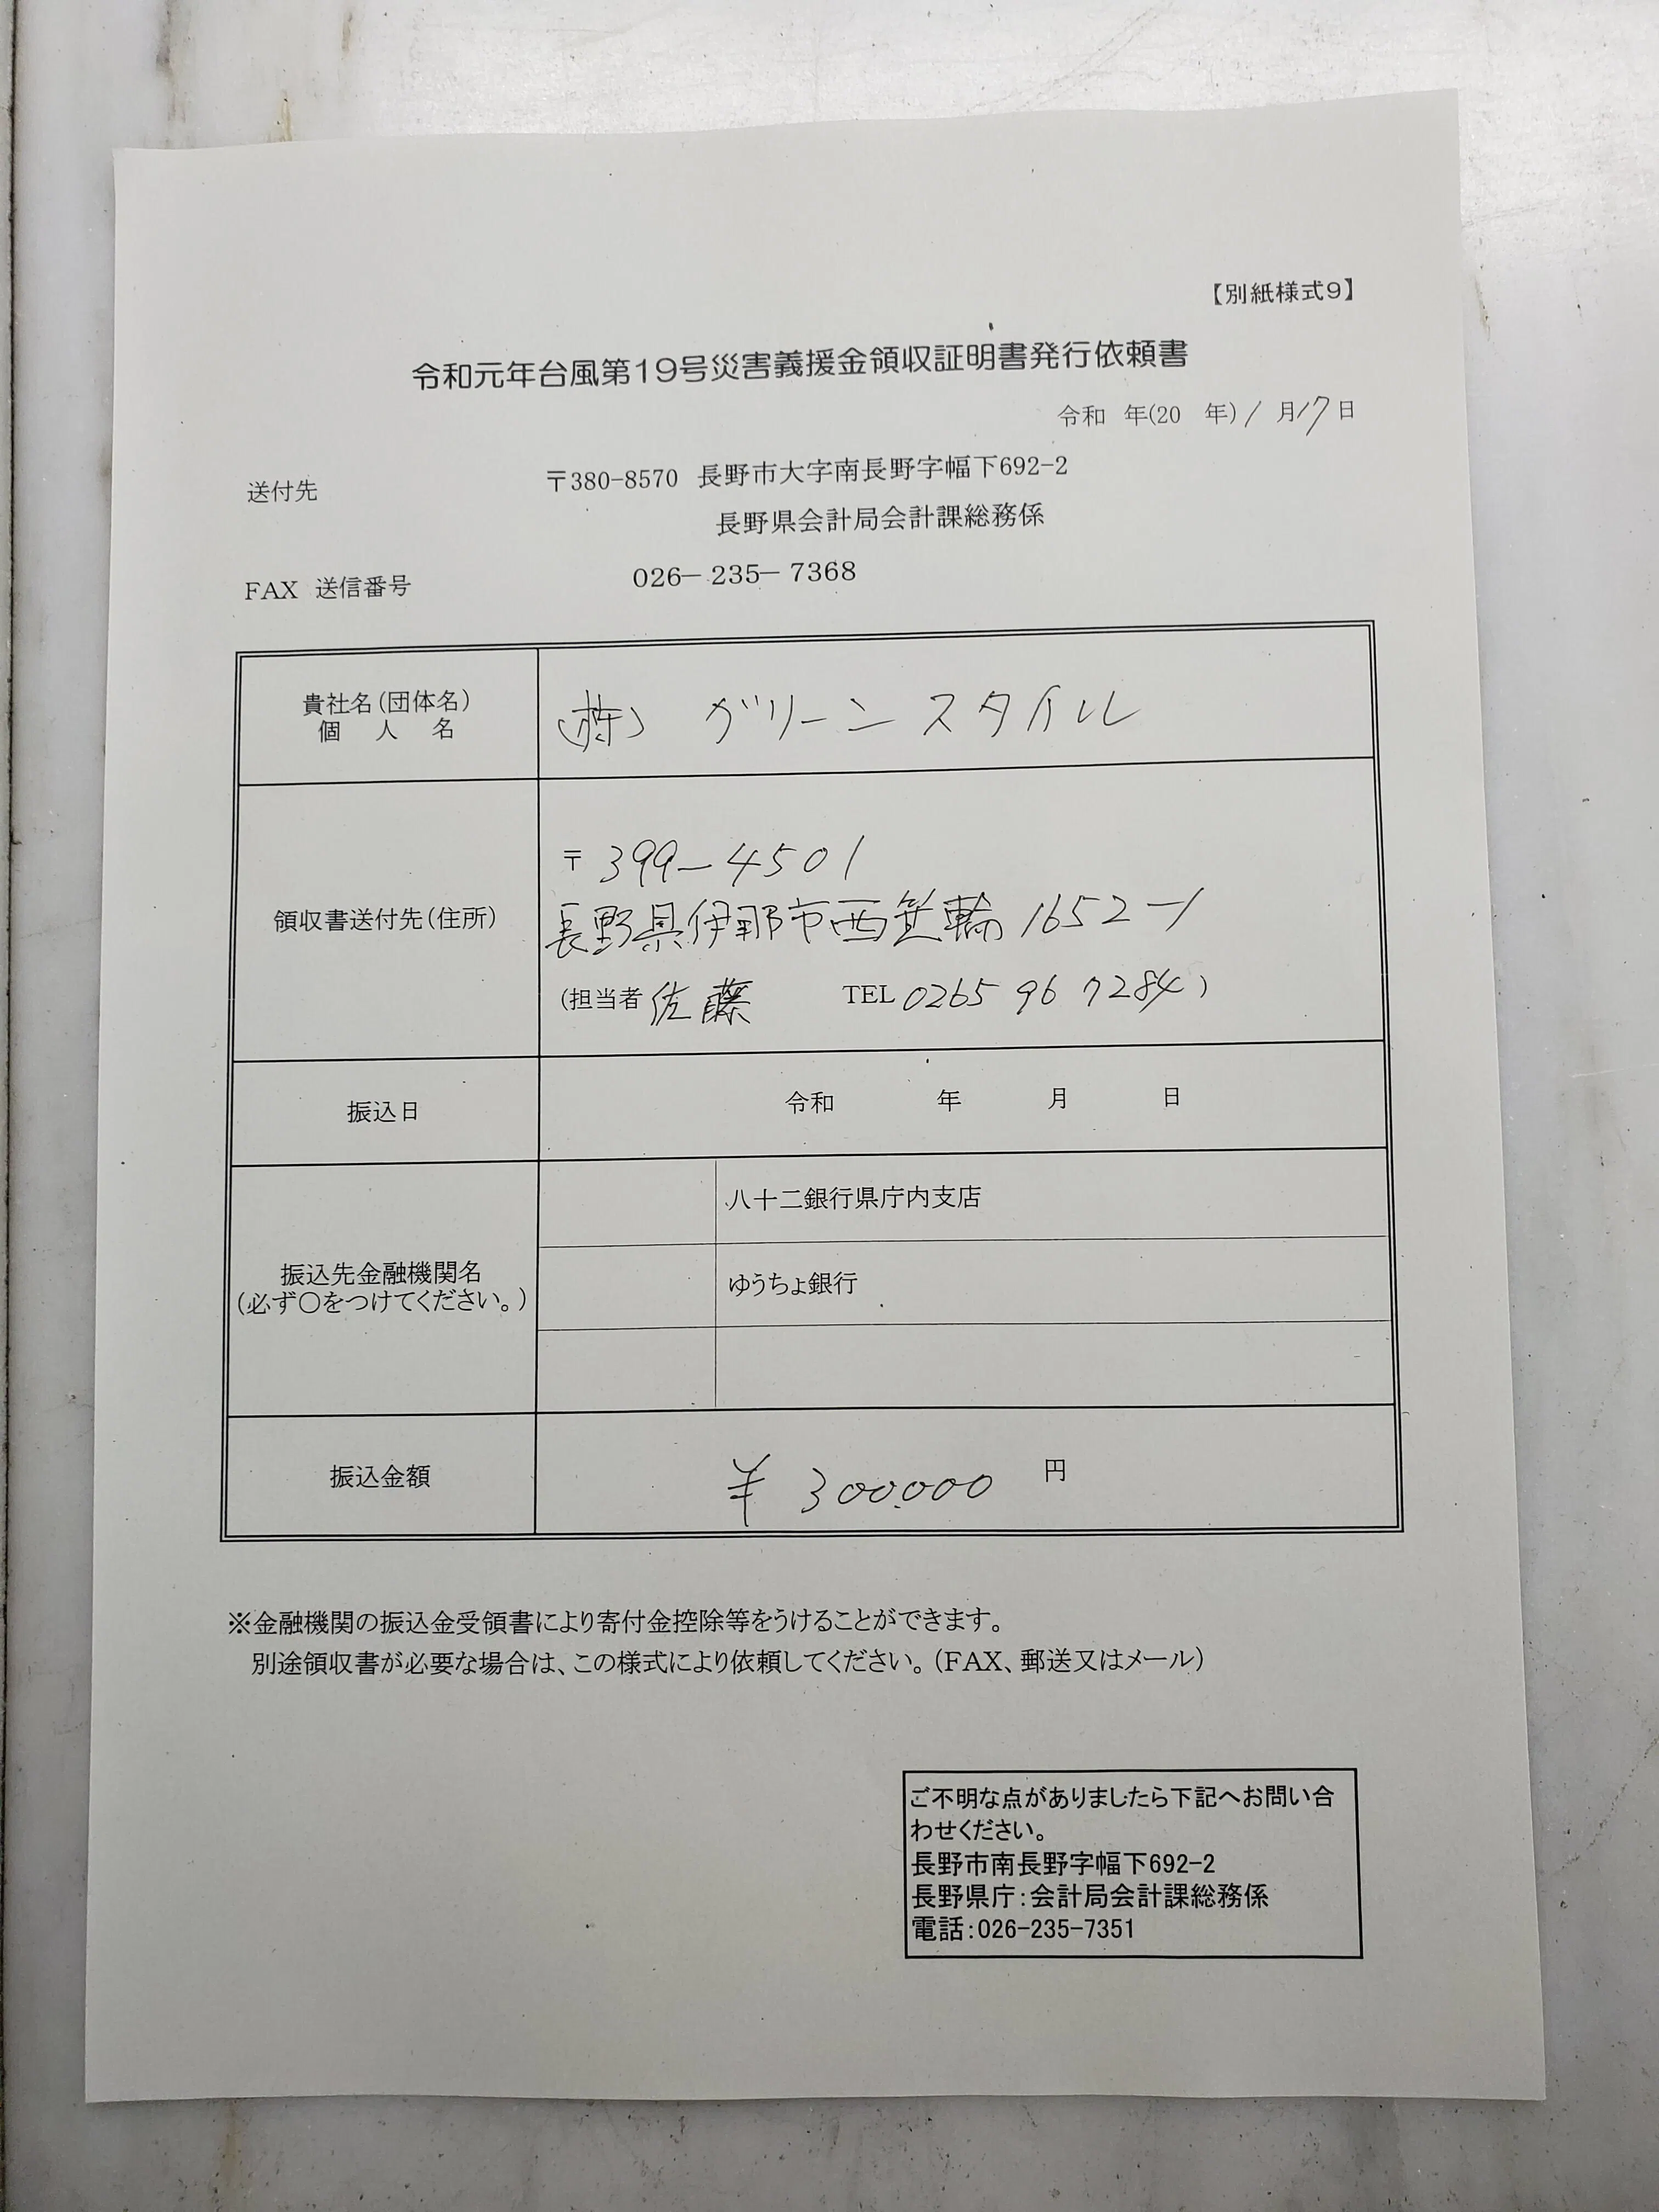 【別紙様式9】
令和元年台風第19号災害義援金領収証明書発行依頼書
令和 年(20 年) 1 月 17 日
送付先 〒380-8570 長野市大字南長野字幅下692-2
長野県会計局会計課総務係
FAX 送信番号 026－235－7368
貴社名(団体名)
個 人 名
(株) グリーンスタイル
領収書送付先(住所)
〒399-4501
長野県伊那市西箕輪1652-1
(担当者 佐藤 TEL 0265 96 7284)
振込日 令和 年 月 日
振込先金融機関名
(必ず○をつけてください。)
八十二銀行県庁内支店
ゆうちょ銀行
振込金額 ¥300,000 円
※金融機関の振込金受領書により寄付金控除等をうけることができます。
別途領収書が必要な場合は、この様式により依頼してください。(FAX、郵送又はメール)
ご不明な点がありましたら下記へお問い合
わせください。
長野市南長野字幅下692-2
長野県庁:会計局会計課総務係
電話:026-235-7351